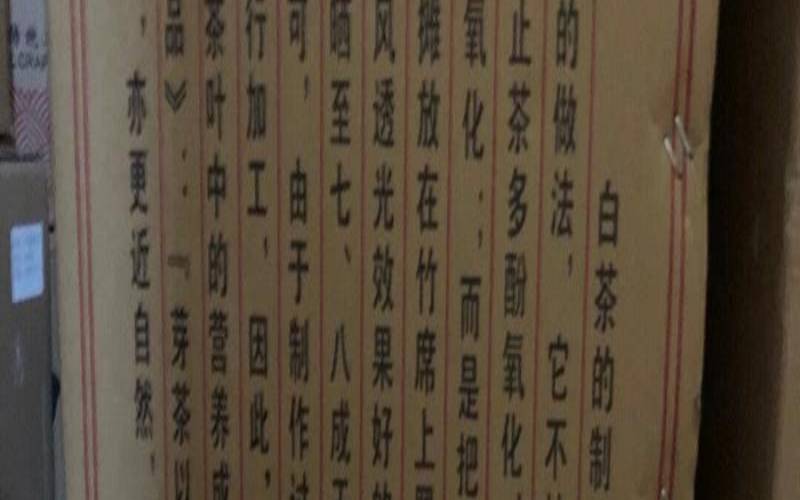 白茶的制
的做法，它不
止茶多酚氧化，
氧化；，而是把
摊放在竹席上
风透光效果好的
晒至七、八成干
可，由于制作过
行加工，因此，
茶叶中的营养成
品》：『芽茶以
，亦更近自然，